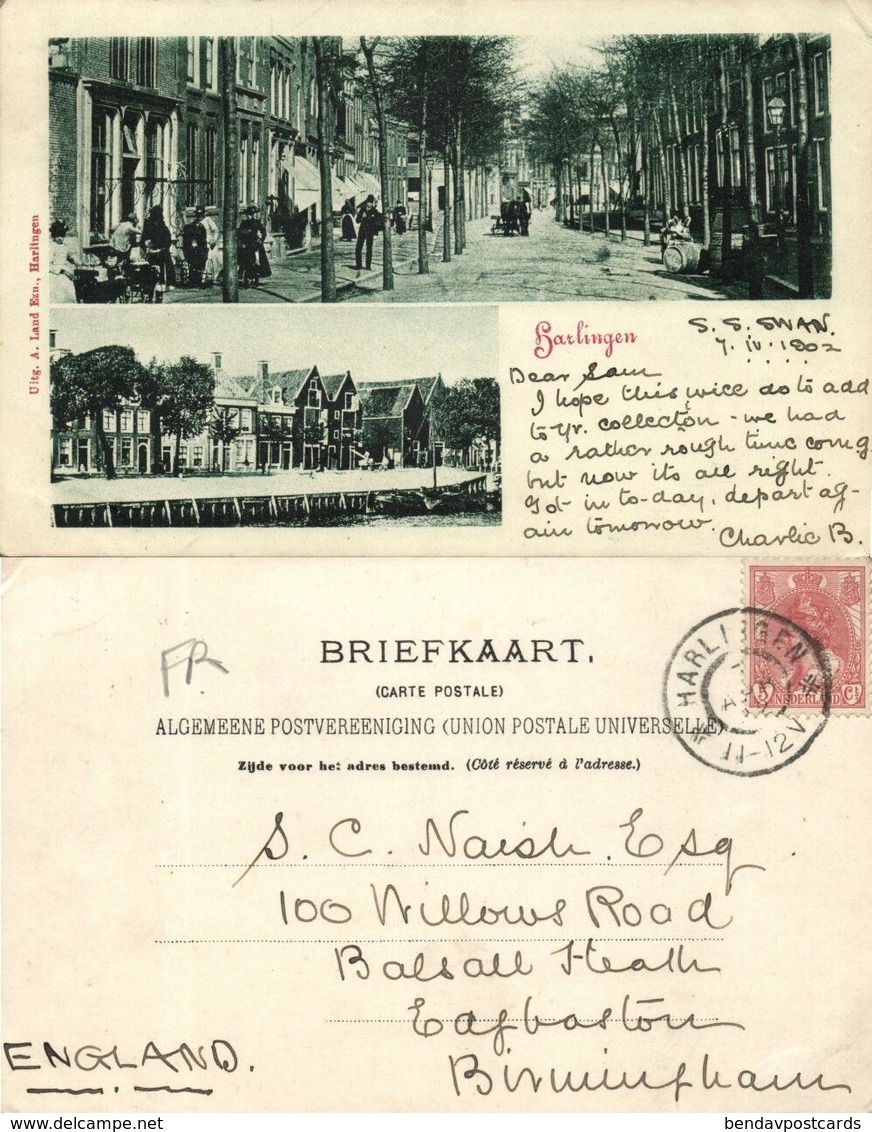 Uitg. A. Land Ezn., Harlingen
Harlingen
S. S. SWAN.
7. IV. 1902
Dear Sam
I hope this wice do to add
to yr. collection - we had
a rather rough time comg
but now its all right.
Got in to-day, depart ag-
ain tomorrow.
Charlie B.
FR
BRIEFKAART.
(CARTE POSTALE)
ALGEMEENE POSTVEREENIGING (UNION POSTALE UNIVERSELLE)
Zijde voor het adres bestemd. (Côté réservé à l'adresse.)
HARLINGEN
11-12V
5 NEDERLAND Ct
S. C. Naish. Esq.
100 Willows Road
Balsall Heath
Edgbaston
Birmingham
ENGLAND.
bendavpostcards.com